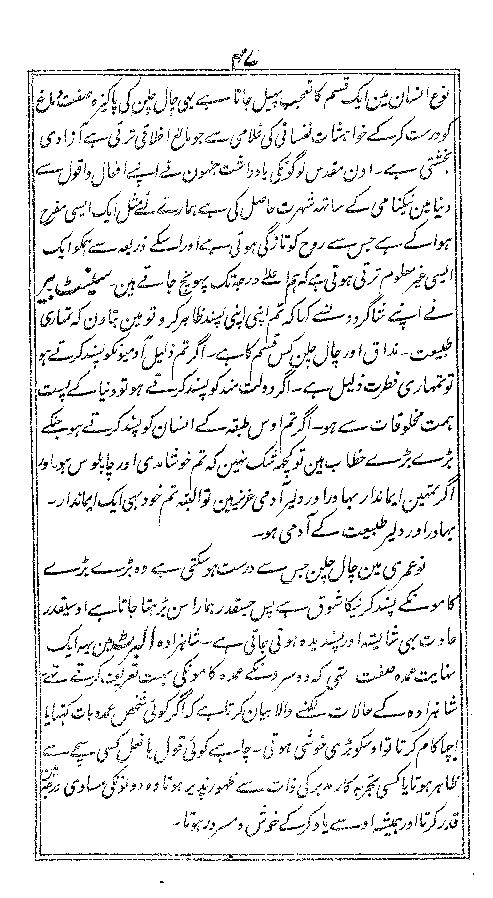 ۴۷
نوع انسان مین ایک قسم کا تعجب پھیل جاتا ہے یہی چال چلن کی پاکیزہ صفت دماغ
کو درست کر کے خواہشات نفسانی کی غلامی سے جو مانع اخلاقی ترقی ہے آزادی
بخشتی ہے۔ اون مقدس لوگونکی یادداشت جنہون نے اپنے افعال و اقوال سے
دنیا مین نیکنامی کے ساتھ شہرت حاصل کی ہے ہمارے لیٔے مثل ایک ایسی مفرح
ہوا کے ہے جس سے روح کو تازگی ہوتی ہے اور اسکے ذریعہ سے ہمکو ایک
ایسی غیر معلوم ترقی ہوتی ہے کہ ہم اعلے درجہ تک پہونچ جاتے ہین۔ سینٹ بیر
نے اپنے شاگردونسے کہا کہ تم اپنی اپنی پسند ظاہر کرو تو مین بتاون کہ تمہاری
طبیعت۔ مذاق اور چال چلن کس قسم کا ہے۔ اگر تم ذلیل آدمیونکو پسند کرتے ہو
تو تمہاری فطرت ذلیل ہے۔ اگر دولت مند کو پسند کرتے ہو تو دنیا کے پست
ہمت مخلوقات سے ہو۔ اگر تم اوس طبقہ کے انسان کو پسند کرتے ہو جنکے
بڑے بڑے خطاب ہین تو کچھ شک نہین کہ تم خوشامدی اور چاپلوس ہو اور
اگر تمہین ایماندار بہادر اور دلیر آدمی عزیز ہین تو البتہ تم خود بہی ایک ایماندار۔
بہادر اور دلیر طبیعت کے آدمی ہو۔
نوعمری مین چال چلن جس سے درست ہو سکتی ہے وہ بڑے بڑے
کامونکے پسند کرنیکا شوق ہے پس جسقدر ہمارا سن بڑہتا جاتا ہے اوسیقدر
عادت بہی شایستہ اور پسندیدہ ہوتی جاتی ہے۔ شاہزادہ البرٹ مین یہ ایک
نہایت عمدہ صفت تہی کہ وہ دوسرونکے عمدہ کامونکی بہت تعریف کرتے تھے
شاہزادہ کے حالات لکھنے والا بیان کرتا ہے کہ اگر کوئی شخص عمدہ بات کہتا یا
اچھا کام کرتا تو اوسکو بڑی خوشی ہوتی۔ چاہے کوئی قول یا فعل کسی بچے سے
ظاہر ہوتا یا کسی تجربہ کار مدبر کی ذات سے ظہور پذیر ہوتا وہ دونونکی مساوی درجہ مین
قدر کرتا اور ہمیشہ اوسے یاد کر کے خوش و مسرور ہوتا۔